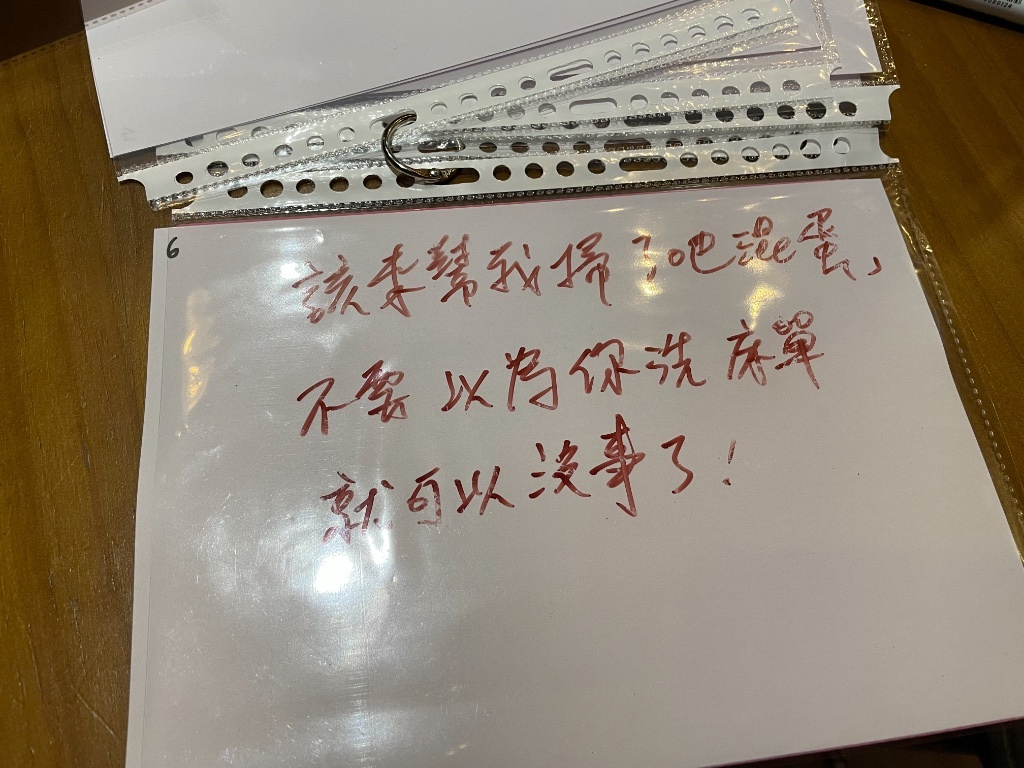 6
該來幫我掃了吧混蛋,
不要以為你洗床單
就可以沒事了!